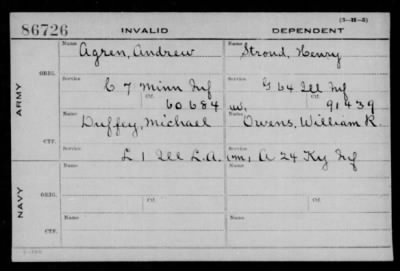 86726 INVALID DEPENDENT (3-H-5)
Name Name
Agren, Andrew Stroud, Henry
ORIG.
Service Service
C 7 Minn Inf G 64 Ill Inf
Ctf. Ctf.
60684 W. 91439
ARMY
Name Name
Duffey, Michael Owens, William R.
CTF.
Service Service
L 1 Ill L.A. (m) A 24 Ky Inf
Name Name
ORIG.
Service Ctf. Service Ctf.
NAVY
Name Name
CTF.